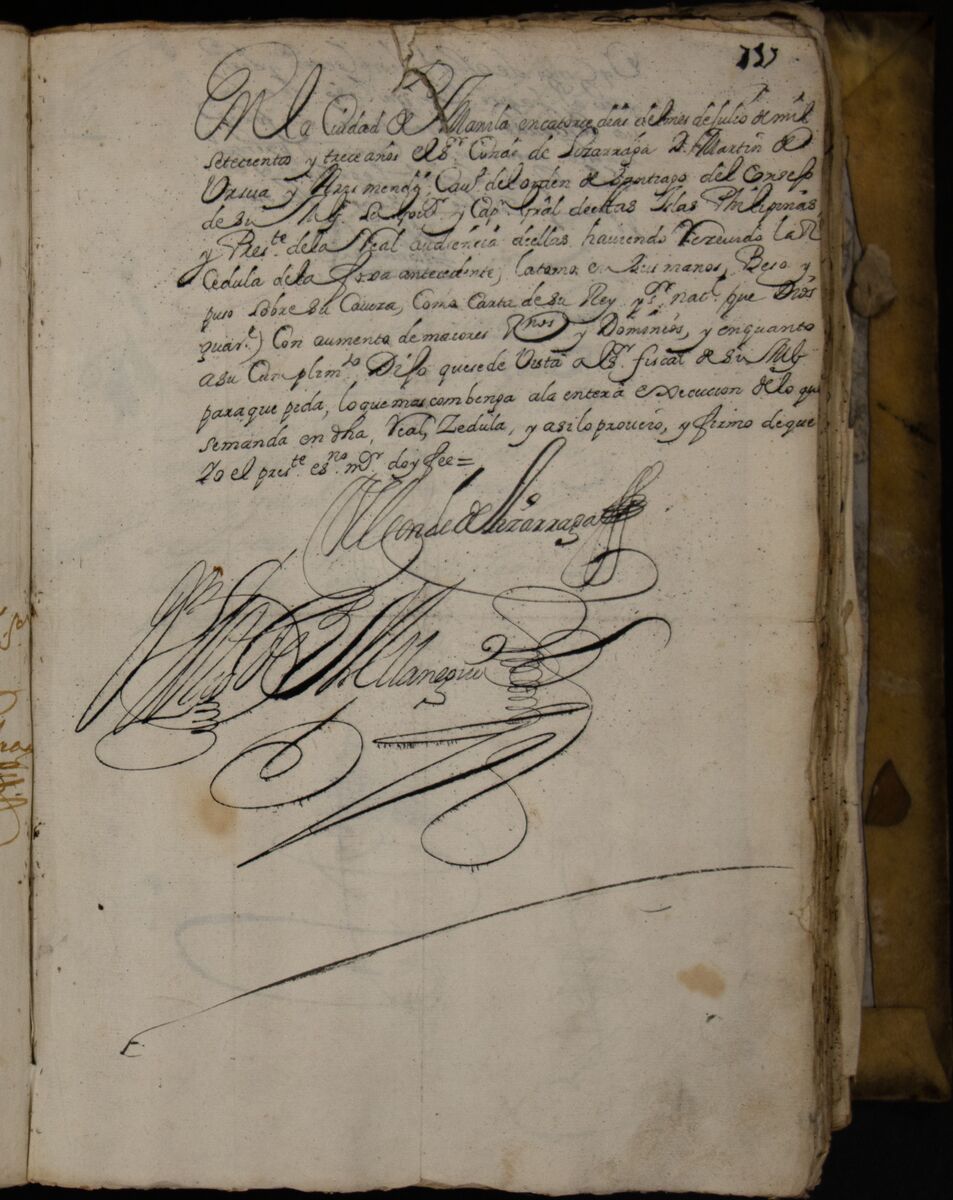 En la Ciudad de Manila en catorce dias del mes de Julio de mil
setecientos y trece años el S.r Conde de Lizarraga D. Martin de
Ursua y Arismendi, Cau.o del orden de Santiago del Consejo
de su Mg. su Gou.or y Cap.n Gral de estas Islas Philipinas
y Pres.te de la Real audiencia de ellas, hauiendo Receuido la R.l
Cedula de la foxa antecedente, la tomo en sus manos, Beso y
puso sobre su Caueza, Como Carta de su Rey y S.r nat.l que Dios
guar.e) Con aumento de maiores Rnos y Dominios, y en quanto
a su Cumplim.to Dijo que se de Vista al S.r fiscal de su Mg.
para que pida, lo que mas combenga a la entera execucion de lo que
se manda en dha, Real, Zedula, y asi lo proueio, y firmo de que
Yo el pres.te es.no m.or doy fee =
El Conde de Lizarraga